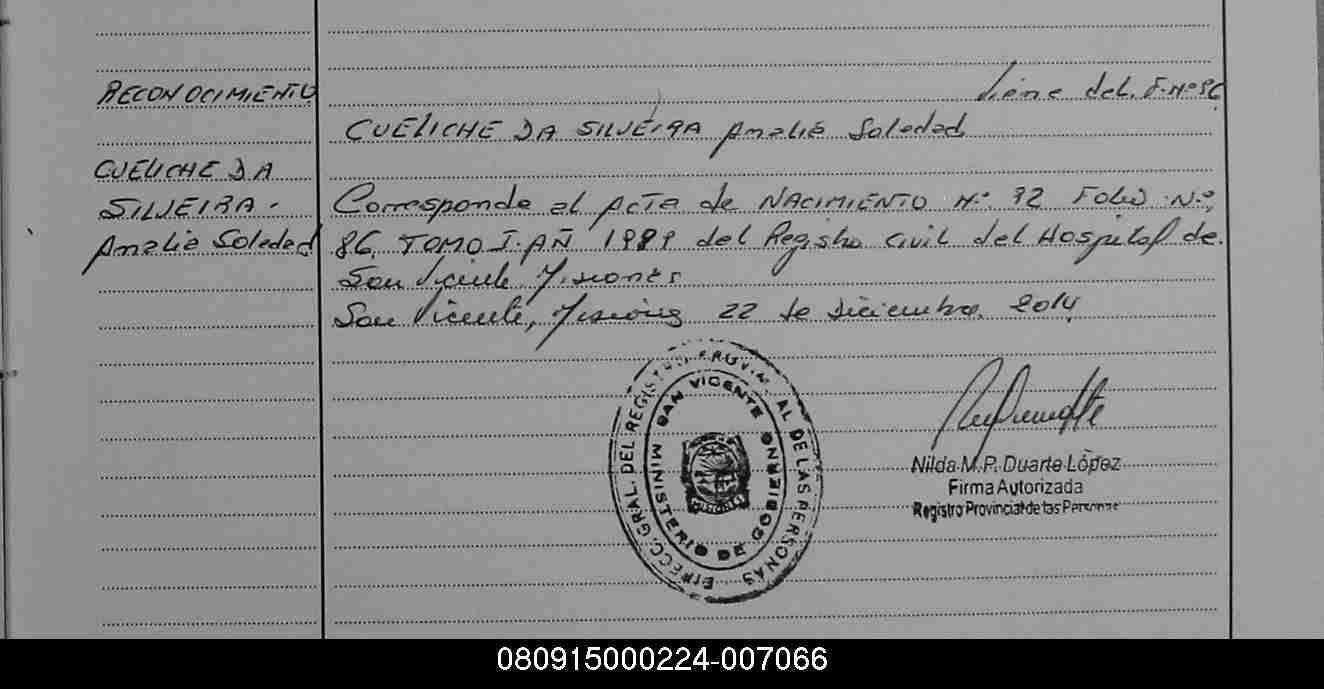 RECONOCIMIENTO
Viene del F.Nº86
CUELICHE DA SILVEIRA Amalia Soledad
CUELICHE DA
SILVEIRA.
Amalia Soledad
Corresponde al Acta de NACIMIENTO Nº 92 Folio Nº
86, TOMO I. AÑ 1989 del Registro Civil del Hospital de
San Vicente Misiones
San Vicente, Misiones 22 de Diciembre 2014
DIRECC. GRAL. DEL REGISTRO PROVINCIAL DE LAS PERSONAS
MINISTERIO DE GOBIERNO
SAN VICENTE
MISIONES
Nilda M.P. Duarte López
Firma Autorizada
Registro Provincial de las Personas
080915000224-007066